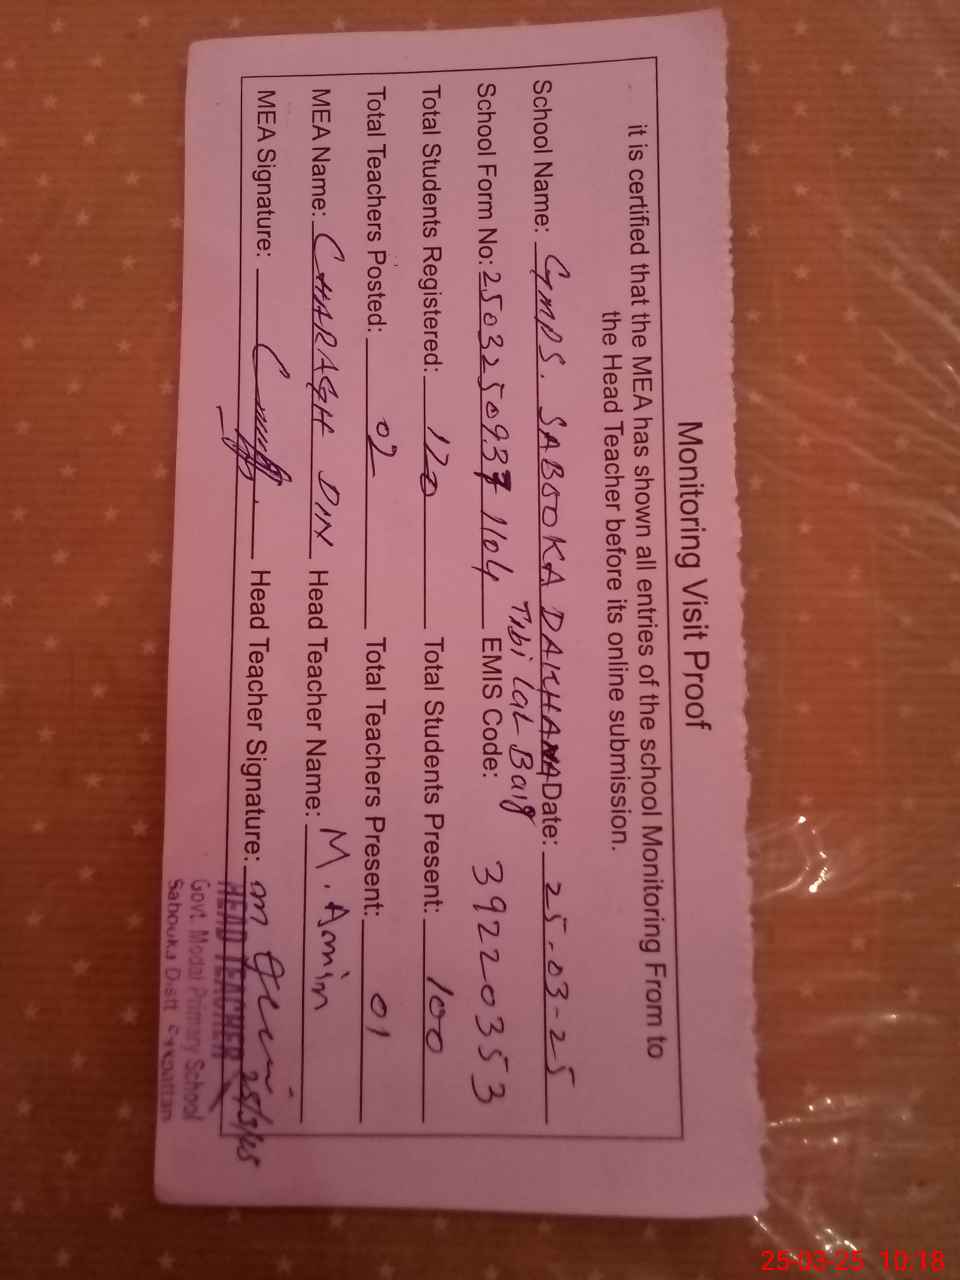 Monitoring Visit Proof
it is certified that the MEA has shown all entries of the school Monitoring From to
the Head Teacher before its online submission.
School Name: GMPS. SABOOKA DAKHANA Date: 25-03-25
Tibi Lal Baig
School Form No: 25032509371104 EMIS Code: 39220353
Total Students Registered: 120 Total Students Present: 100
Total Teachers Posted: 02 Total Teachers Present: 01
MEA Name: CHARAGH DIN Head Teacher Name: M. Amin
MEA Signature: Head Teacher Signature: 25/3/25
HEAD TEACHER
Govt. Modal Primary School
Sabouka Distt
25-03-25 10:18